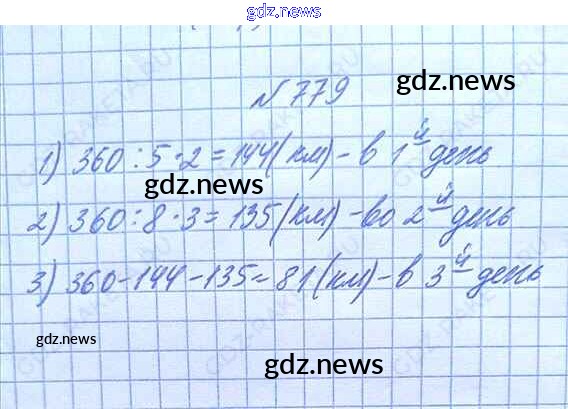 gdz.news
№779
gdz.news
1) 360:5·2=144(км)-в 1й день
gdz.news
2) 360:8·3=135(км)-во 2й день
3) 360-144-135=81(км)-в 3й день
gdz.news
gdz.news